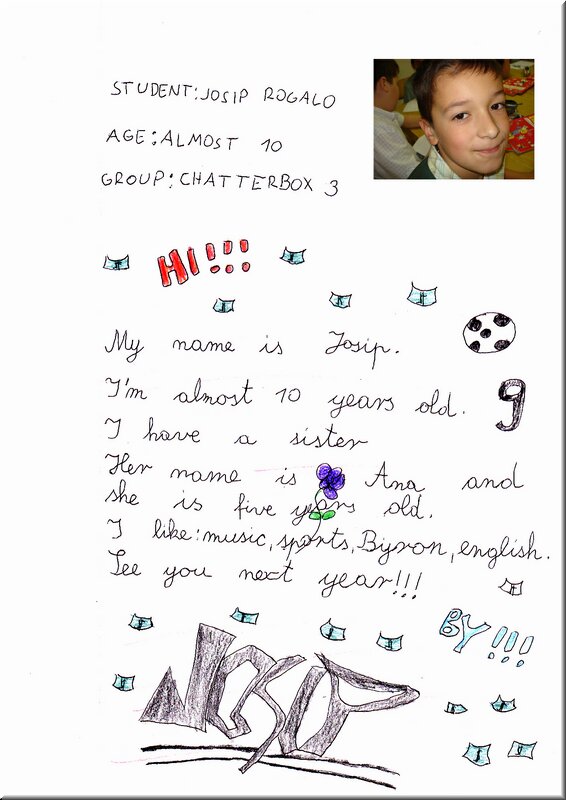 STUDENT: JOSIP ROGALO
AGE: ALMOST 10
GROUP: CHATTERBOX 3
HI!!!
My name is Josip.
I'm almost 10 years old.
9
I have a sister
Her name is Ana and
she is five years old.
I like: music, sports, Byron, english.
See you next year!!!
BY!!!
JOSIP